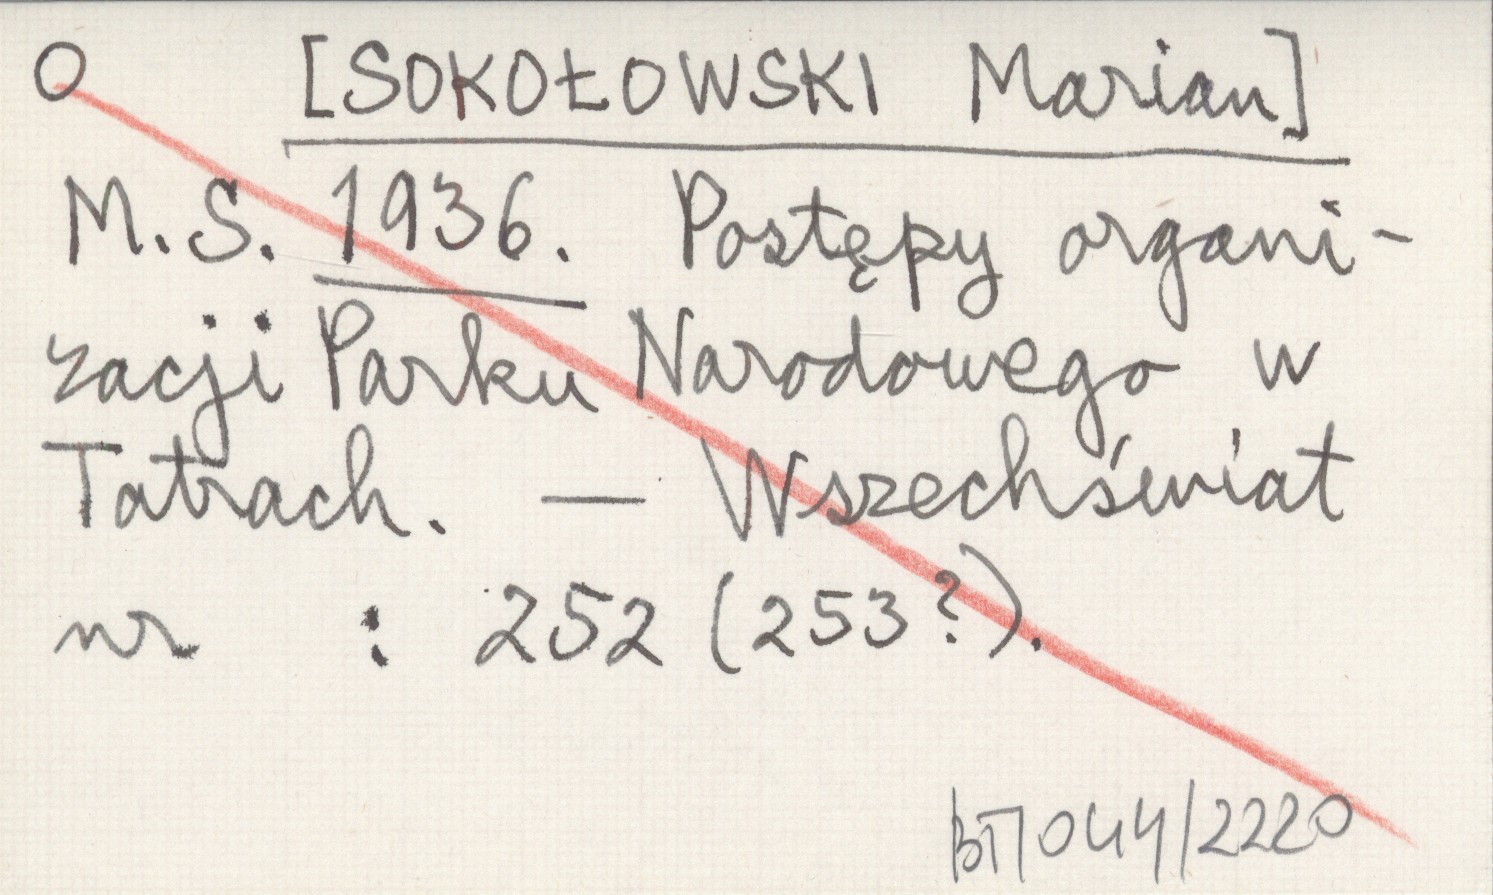 O [SOKOŁOWSKI Marian]
M. S. 1936. Postępy organi-
zacji Parku Narodowego w
Tatrach. — Wszechświat
nr : 252 (253?).
BT/044/2220